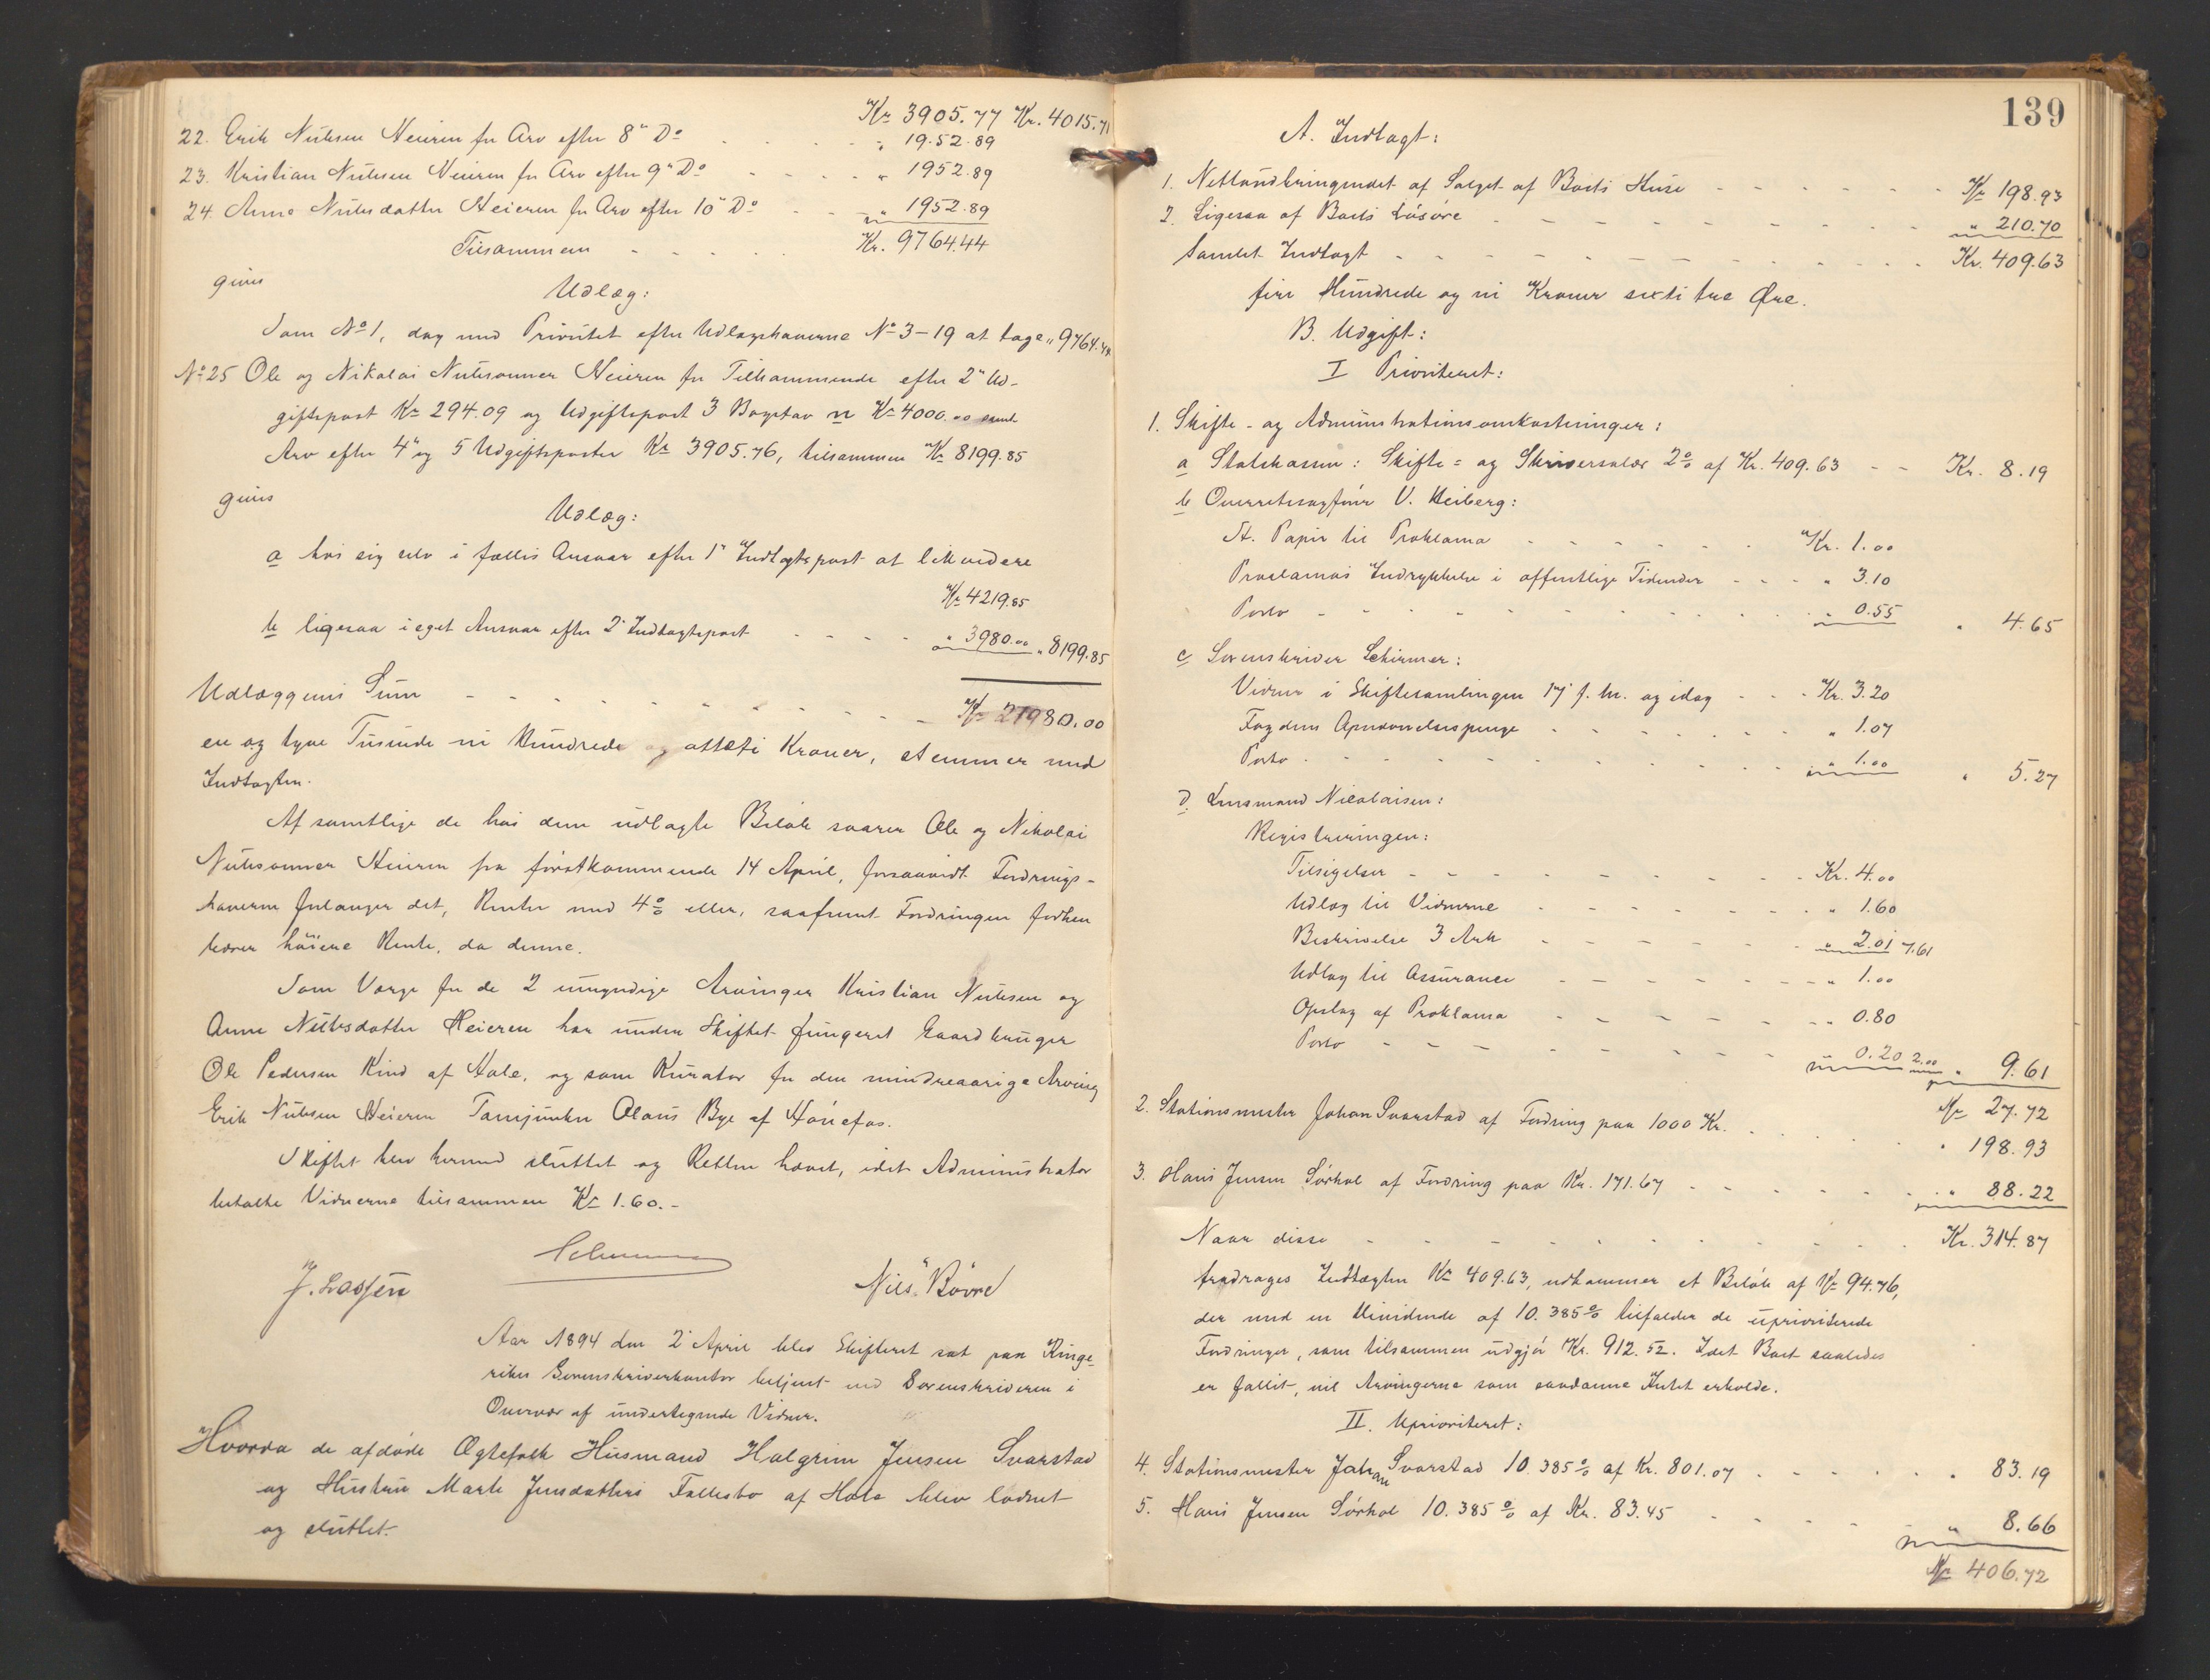 Kr 3905.77 Kr. 4015.71
22. Erik Nilsen Heieren for Arv efter 8" Do - - - - „ 19.52.89
23. Kristian Nilsen Heieren for Arv efter 9" Do - - - - „ 1952.89
24. Anne Nilsdatter Heieren for Arv efter 10" Do - - „ 1952.89
Tilsammen - - - - - Kr. 9764.44
gives
Udlæg:
Som No 1, dog med Prioritet efter Udlægshaverne No 3-19 at tage „ 9764.44
No 25 Ole og Nikolai Nilssønner Heieren for Tilkommende efter 2" Ud-
giftspost Kr 294.09 og Udgiftspost 3 Bogstav n Kr 4000.00 samt
Arv efter 4" og 5 Udgiftsposter Kr 3905.76, tilsammen Kr 8199.85
gives
Udlæg:
a hos sig selv i fælles Ansvar efter 1" Indtægtspost at likvidere
Kr 4219.85
b ligesaa i eget Ansvar efter 2" Indtægtspost - - - - „ 3980.00 „ 8199.85
Udlæggenes Sum - - - - - - - - - Kr 21980.00
en og tyve Tusinde ni Hundrede og otteti Kroner, stemmer med
Indtægten.
Af samtlige de hos dem udlagte Beløb svarer Ole og Nikolai
Nilssønner Heieren fra førstkommende 14 April, forsaavidt Fordrings-
haverne forlanger det, Renter med 4 % eller, saafremt Fordringen forhen
bærer høiere Rente, da denne.
Som Værge for de 2 umyndige Arvinger Kristian Nilsen og
Anne Nilsdatter Heieren har under Skiftet fungeret Gaardbruger
Ole Pedersen Rind af Hole, og som Kurator for den mindreaarige Arving
Erik Nilsen Heieren Olaus Bye af Hønefos.
Skiftet blev hermed sluttet og Retten hævet, idet Administrator
betalte Vidnerne tilsammen Kr 1.60.-
Schirmer
J. Lassen
Nils Bøvre
Aar 1894 den 2" April blev Skifteret sat paa Ringe-
rikes Sorenskriverkontor betjent ved Sorenskriveren i
Overvær af undertegnede Vidner.
Hvorda de afdøde Ægtefolk Husmand Halgrim Jensen Svarstad
og Hustru Marte Jensdatters Fællesbo af Hole blev lodnet
og sluttet.
139
A. Indtægt:
1. Nettoudbringendet af Salget af Boets Huse - - - - - - - Kr 198.93
2. Ligesaa af Boets Løsøre - - - - - - - - - - „ 210.70
Samlet Indtægt - - - - - - - - - - - - Kr. 409.63
fire Hundrede og ni Kroner sexti tre Øre.
B. Udgift:
I Prioriteret:
1. Skifte- og Administrationsomkostninger:
a Statskassen: Skifte- og Skriversalær 2 % af Kr. 409.63 - - Kr. 8.19
b Overretssagfører V. Heiberg:
St. Papir til Proklama - - - - - - - Kr. 1.00
Proclamas Indrykkelse i offentlige Tidender - - - - „ 3.10
Porto - - - - - - - - - - „ 0.55 „ 4.65
c Sorenskriver Schirmer:
Vidner i Skiftesamlingen 17 f. M. og idag - - - Kr. 3.20
Fogdens Opnævnelsespenge - - - - - - „ 1.07
Porto - - - - - - - - - - „ 1.00 „ 5.27
d. Lensmand Nicolaisen:
Registreringen:
Tilsigelser - - - - - - - - - Kr. 4.00
Udlæg til Vidnerne - - - - - - - „ 1.60
Beskrivelse 3 Ark - - - - - - - „ 2.01 7.61
Udlæg til Assurance - - - - - - „ 1.00
Opslag af Proklama - - - - - - „ 0.80
Porto - - - - - - - - 0.20 2.00 „ 9.61
Kr 27.72
2. Stationsmester Johan Svarstad af Fordring paa 1000 Kr. - - - - - „ 198.93
3. Hans Jensen Sørhol af Fordring paa Kr. 171.67 - - - - - - „ 88.22
Naar disse - - - - - - - - - - - Kr. 314.87
fradrages Indtægten Kr 409.63, udkommer et Beløb af Kr 94.76,
der med en Dividende af 10.385 % tilfalder de uprioriterede
Fordringer, som tilsammen udgjør Kr. 912.52. Idet Boet saaledes
er fallit, vil Arvingerne som saadanne Intet erholde.
II. Uprioriteret:
4. Stationsmester Johan Svarstad 10.385 % af Kr. 801.07 - - - - - - „ 83.19
5. Hans Jensen Sørhol 10.385 % af Kr. 83.45 - - - - - „ 8.66
Kr 406.72